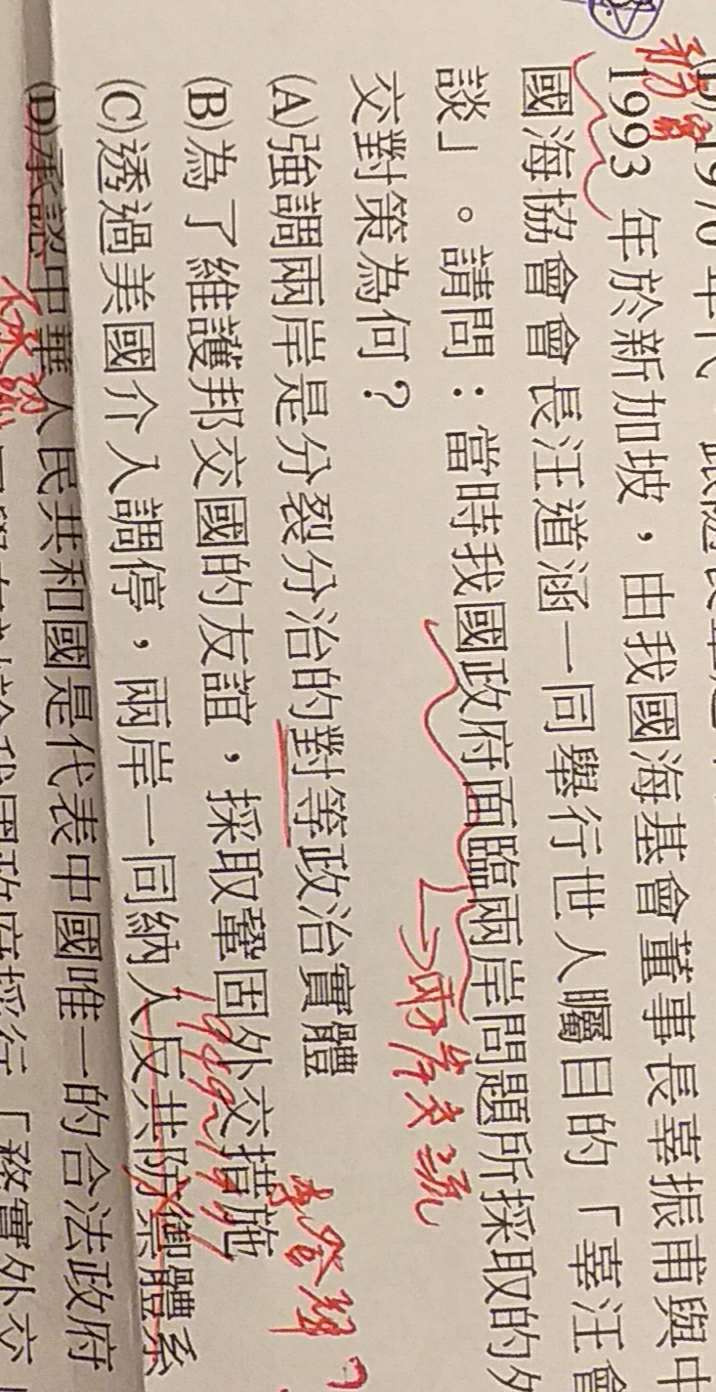 1993 年於新加坡，由我國海基會董事長辜振甫與中
國海協會會長汪道涵一同舉行世人矚目的「辜汪會
談」。請問：當時我國政府面臨兩岸問題所採取的外
交對策為何？
(A)強調兩岸是分裂分治的對等政治實體
(B)為了維護邦交國的友誼，採取鞏固外交措施
(C)透過美國介入調停，兩岸一同納入反共防禦體系
(D)承認中華人民共和國是代表中國唯一的合法政府
務實
兩岸交流
李登輝？
「務實外交」